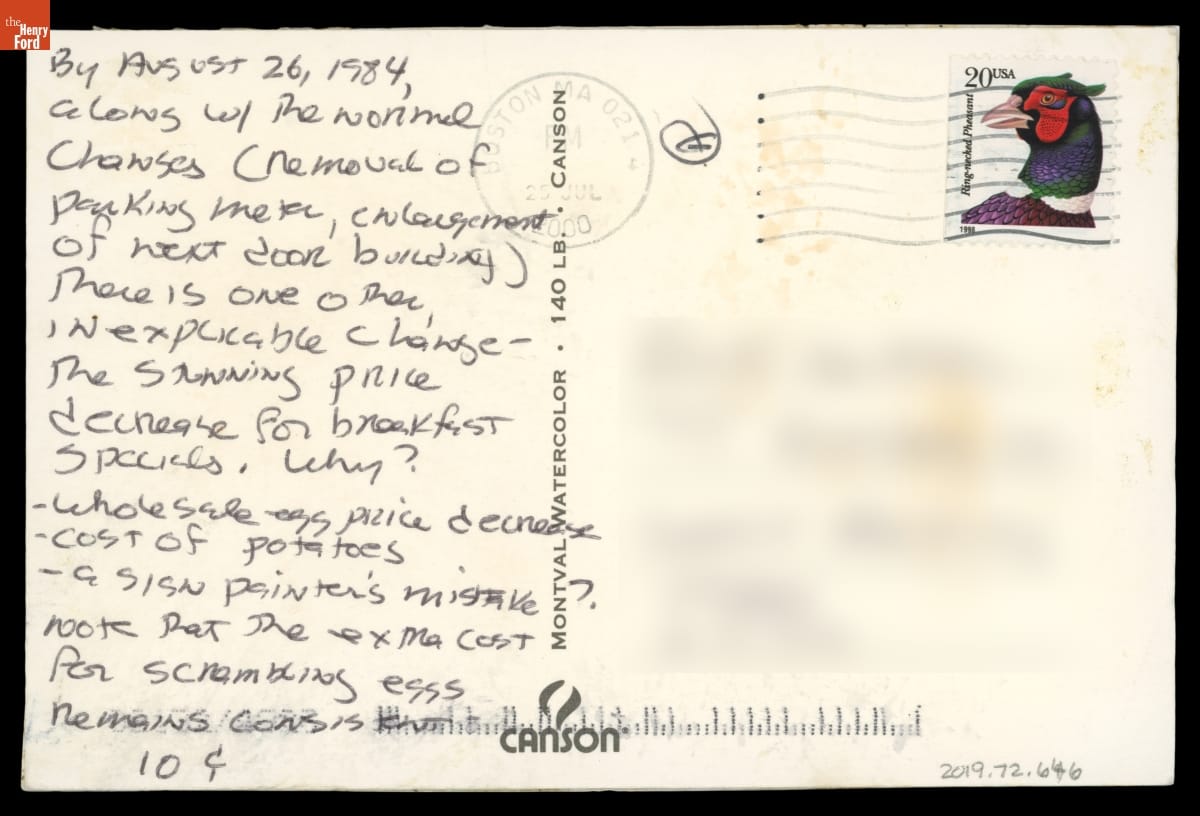 the
Henry
Ford
By August 26, 1984,
along w/ the normal
changes (removal of
parking meter, enlargement
of next door building)
there is one other,
inexplicable change-
the stunning price
decrease for breakfast
specials. Why?
-wholesale egg price decrease
-cost of potatoes
-a sign painter's mistake?
note that the extra cost
for scrambling eggs
remains consistent
10 ¢
MONTVAL WATERCOLOR • 140 LB. • CANSON
CANSON
BOSTON MA 021
PM
25 JUL
2000
R
20USA
Ring-necked Pheasant
1998
2019.72.646